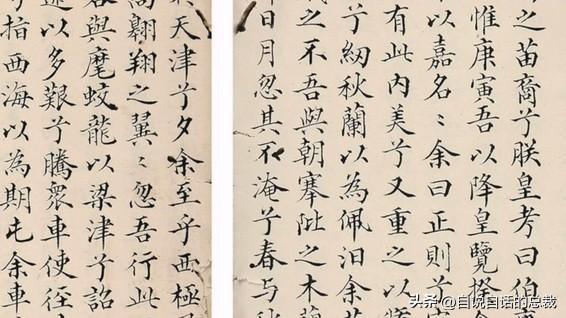 之苗裔兮朕皇考曰伯
惟庚寅吾以降皇覽揆余
以嘉名〻余曰正則兮
有此內美兮又重之以
兮紉秋蘭以為佩汩余
之不吾與朝搴阰之木
日月忽其不淹兮春與秋
天津兮夕余至乎西極
翱翔之翼〻忽吾行此
與麾蛟龍以梁津兮詔
以多艱兮騰衆車使徑
指西海以為期屯余車
头条 @自说自话的总裁